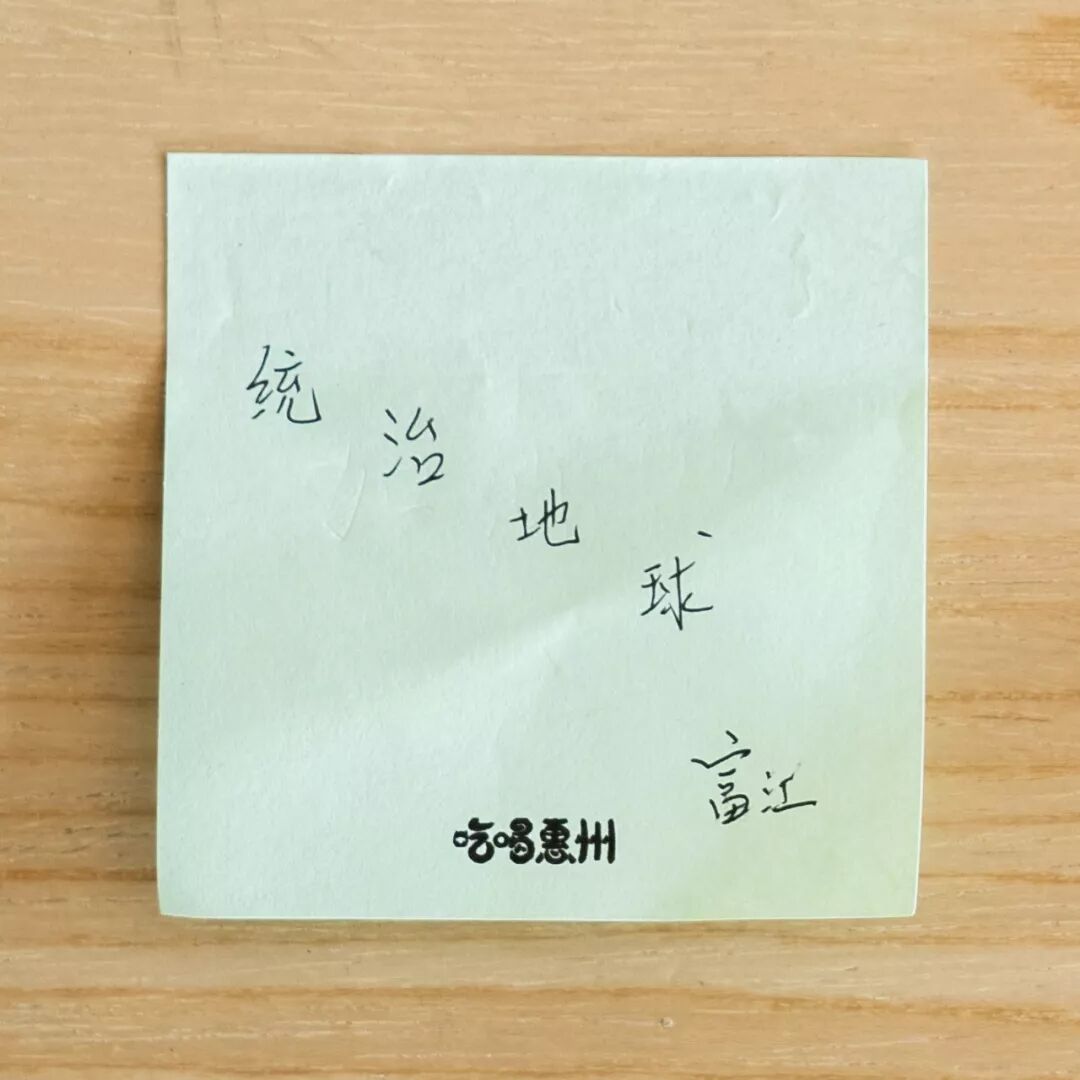 统治地球
富江
吃喝惠州